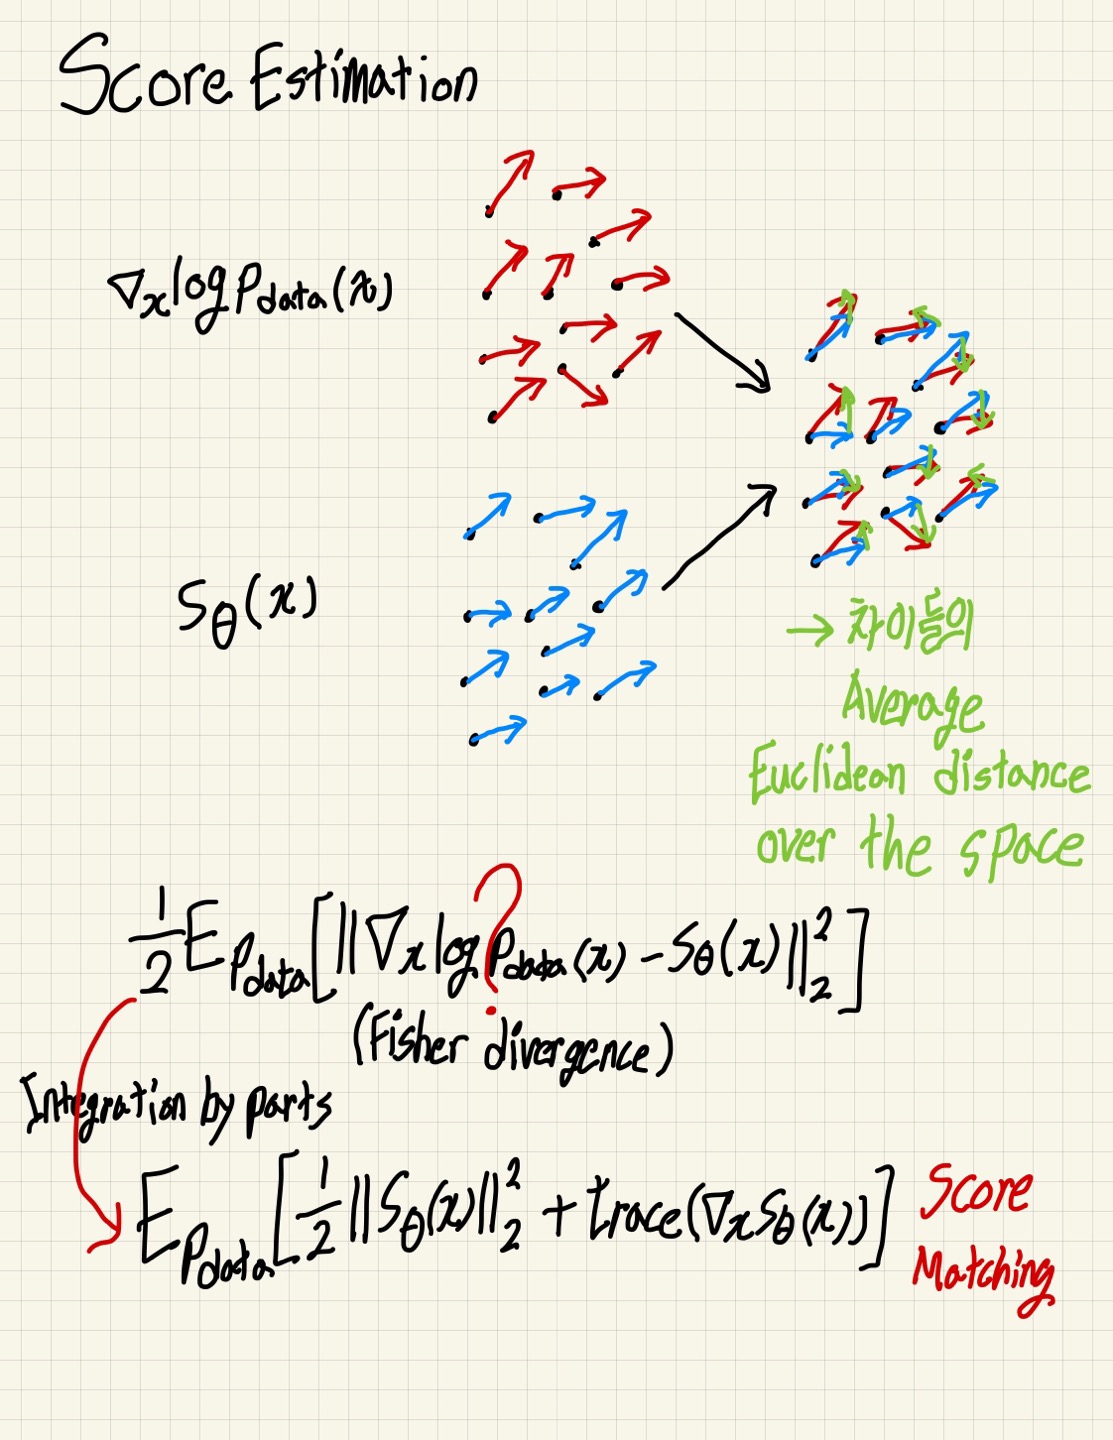 Score Estimation
∇ₓ log p_data(x)
s_θ(x)
→ 차이들의
Average
Euclidean distance
over the space
1/2 E_{p_data}[||∇ₓ log p_data(x) - s_θ(x)||₂²]
?
(Fisher divergence)
Integration by parts
E_{p_data}[1/2 ||s_θ(x)||₂² + trace(∇ₓ s_θ(x))]
Score
Matching